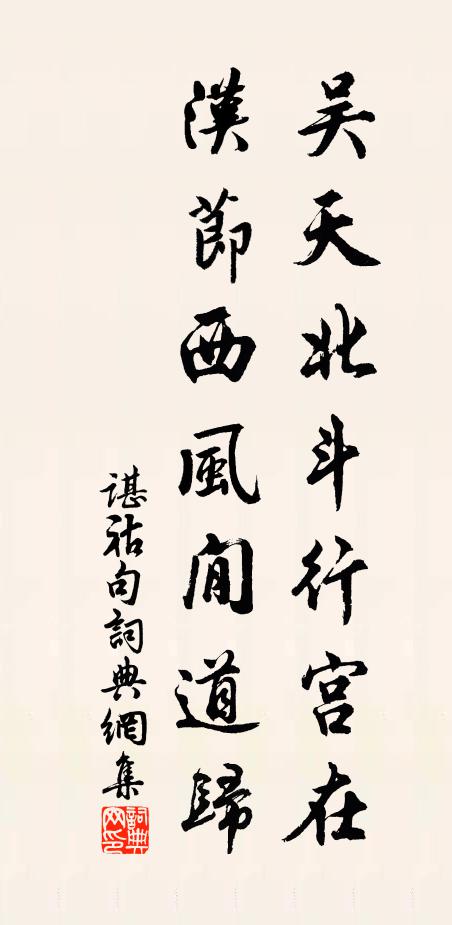 吴天北斗行宫在
漢節西風間道歸
諶祜句詞典網集
詞典網印